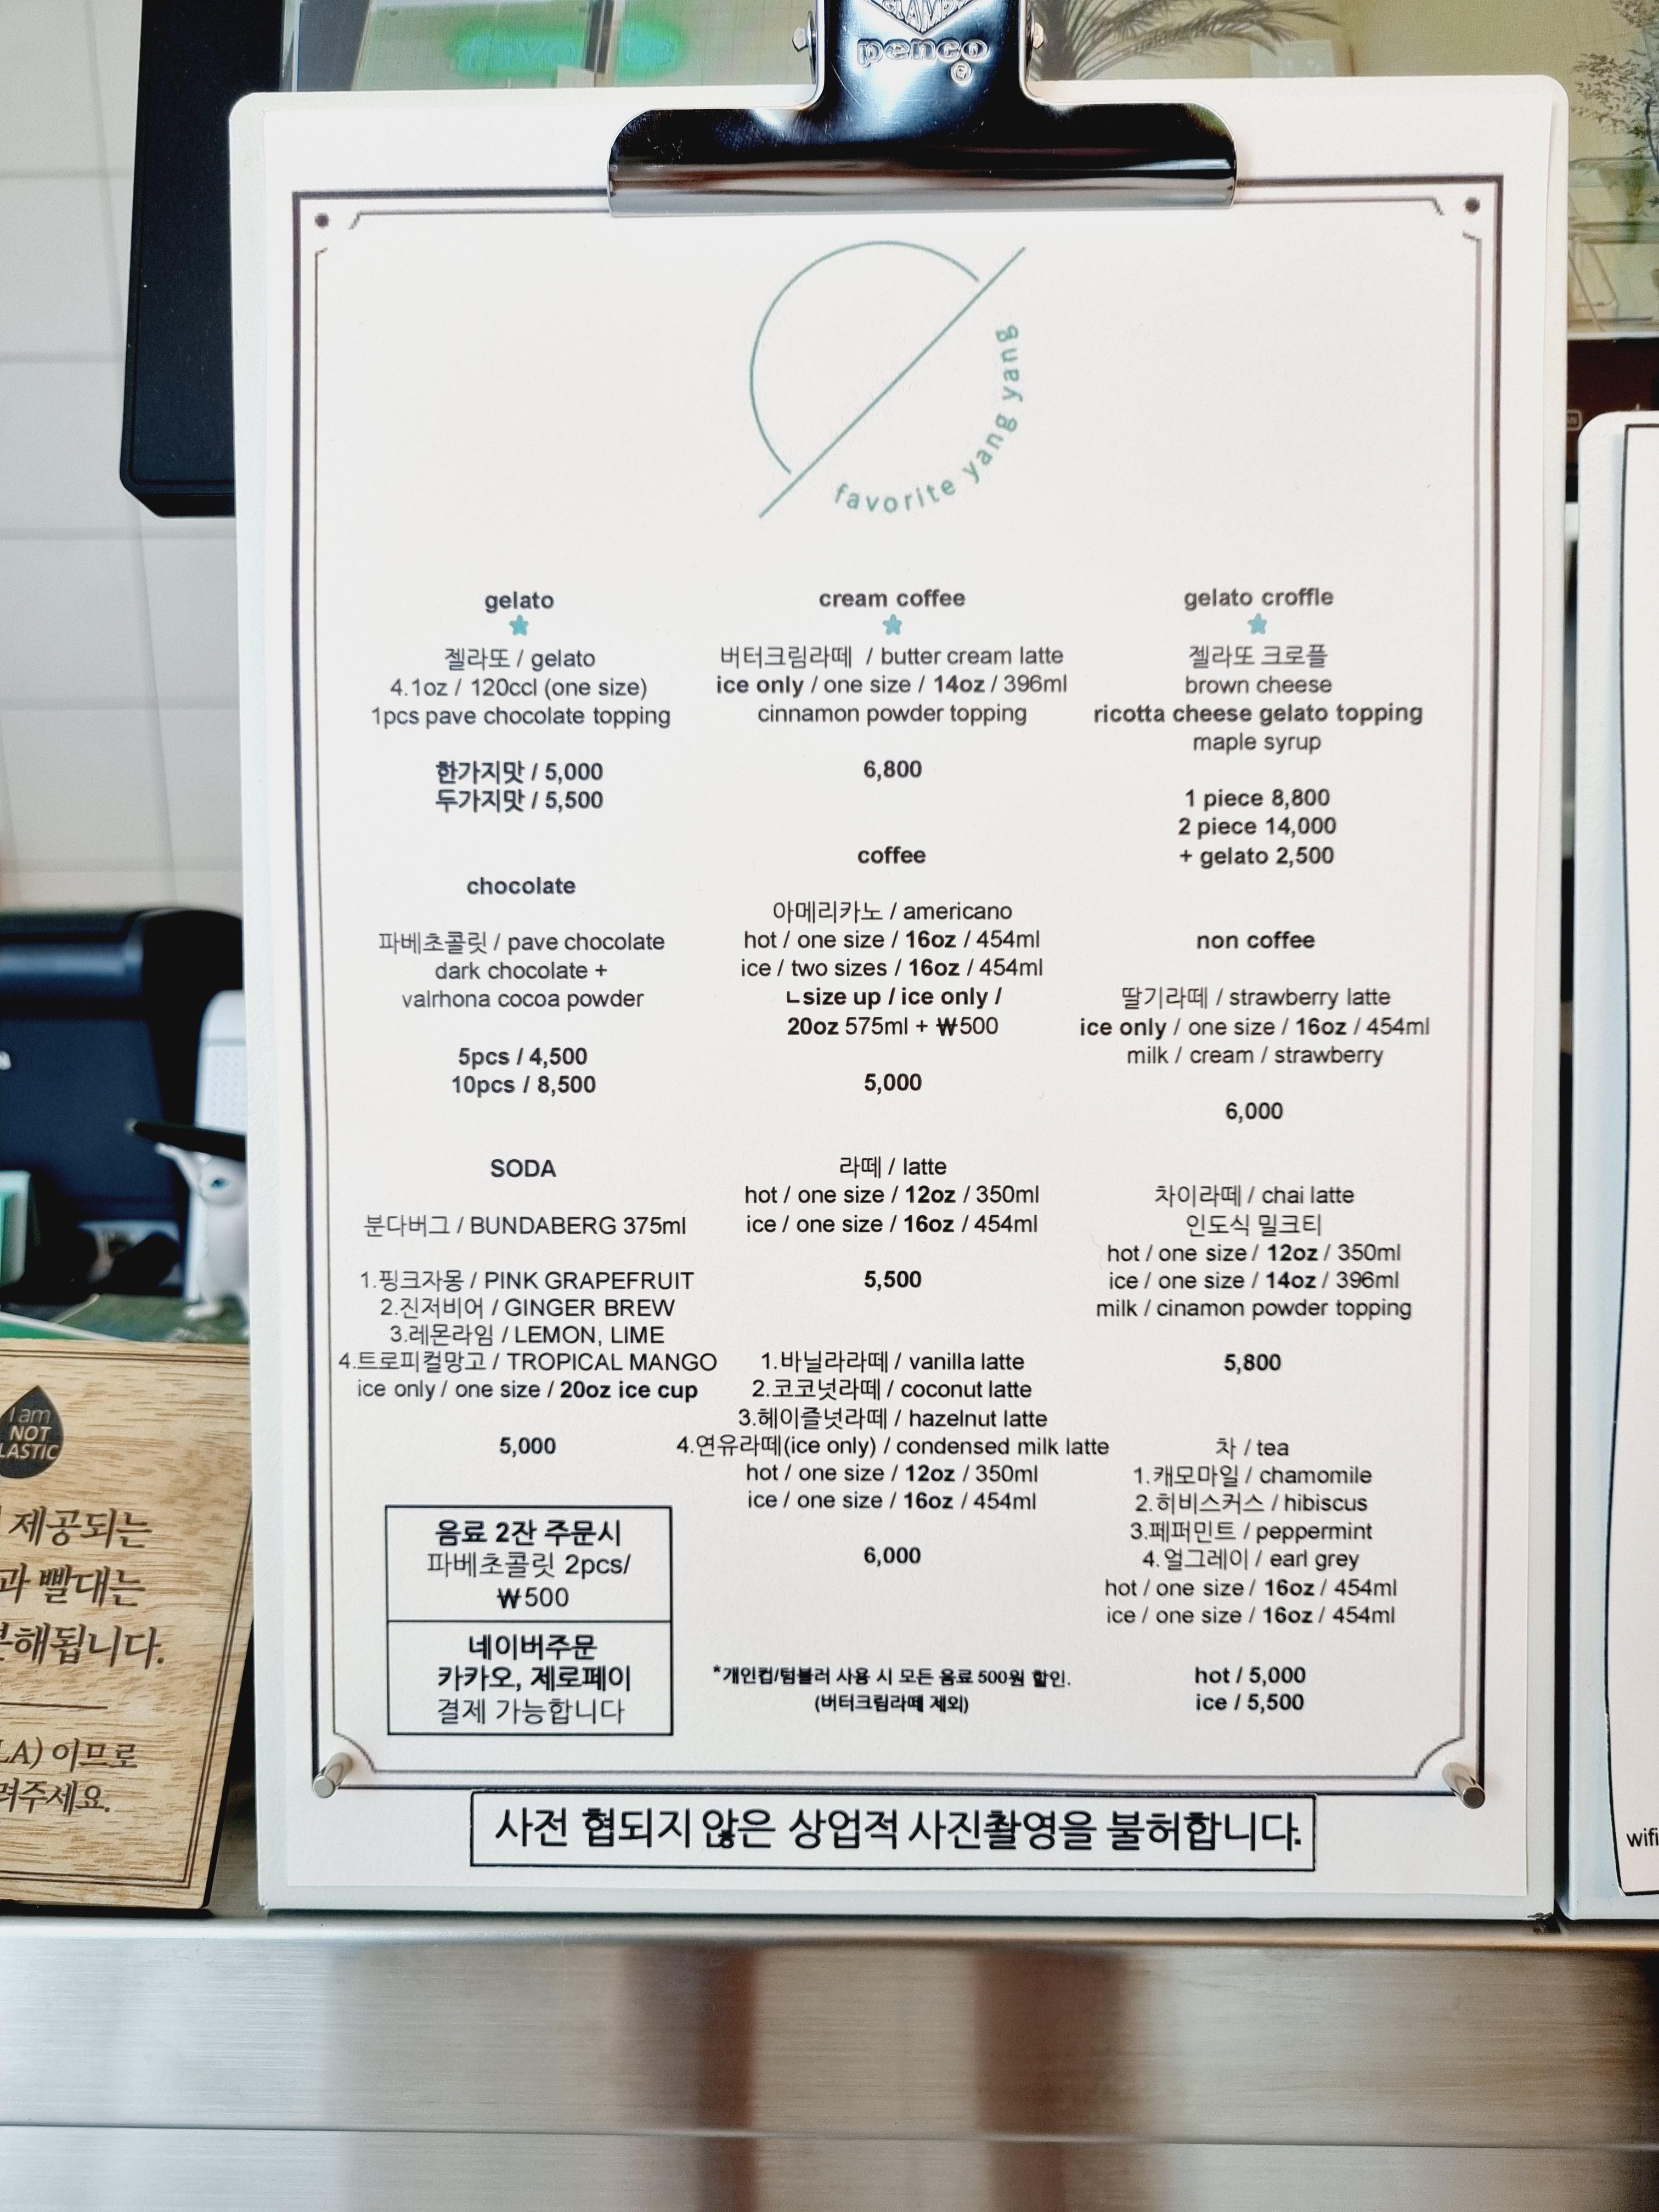 penco
favorite yang yang
gelato
젤라또 / gelato
4.1oz / 120ccl (one size)
1pcs pave chocolate topping
한가지맛 / 5,000
두가지맛 / 5,500
chocolate
파베초콜릿 / pave chocolate
dark chocolate +
valrhona cocoa powder
5pcs / 4,500
10pcs / 8,500
SODA
분다버그 / BUNDABERG 375ml
1.핑크자몽 / PINK GRAPEFRUIT
2.진저비어 / GINGER BREW
3.레몬라임 / LEMON, LIME
4.트로피컬망고 / TROPICAL MANGO
ice only / one size / 20oz ice cup
5,000
음료 2잔 주문시
파베초콜릿 2pcs/
₩500
네이버주문
카카오, 제로페이
결제 가능합니다
cream coffee
버터크림라떼 / butter cream latte
ice only / one size / 14oz / 396ml
cinnamon powder topping
6,800
coffee
아메리카노 / americano
hot / one size / 16oz / 454ml
ice / two sizes / 16oz / 454ml
ㄴsize up / ice only /
20oz 575ml + ₩500
5,000
라떼 / latte
hot / one size / 12oz / 350ml
ice / one size / 16oz / 454ml
5,500
1.바닐라라떼 / vanilla latte
2.코코넛라떼 / coconut latte
3.헤이즐넛라떼 / hazelnut latte
4.연유라떼(ice only) / condensed milk latte
hot / one size / 12oz / 350ml
ice / one size / 16oz / 454ml
6,000
*개인컵/텀블러 사용 시 모든 음료 500원 할인.
(버터크림라떼 제외)
gelato croffle
젤라또 크로플
brown cheese
ricotta cheese gelato topping
maple syrup
1 piece 8,800
2 piece 14,000
+ gelato 2,500
non coffee
딸기라떼 / strawberry latte
ice only / one size / 16oz / 454ml
milk / cream / strawberry
6,000
차이라떼 / chai latte
인도식 밀크티
hot / one size / 12oz / 350ml
ice / one size / 14oz / 396ml
milk / cinamon powder topping
5,800
차 / tea
1.캐모마일 / chamomile
2.히비스커스 / hibiscus
3.페퍼민트 / peppermint
4.얼그레이 / earl grey
hot / one size / 16oz / 454ml
ice / one size / 16oz / 454ml
hot / 5,000
ice / 5,500
사전 협되지 않은 상업적 사진촬영을 불허합니다.
I am
NOT
LASTIC
제공되는
과 빨대는
분해됩니다.
LA) 이므로
려주세요.
wifi